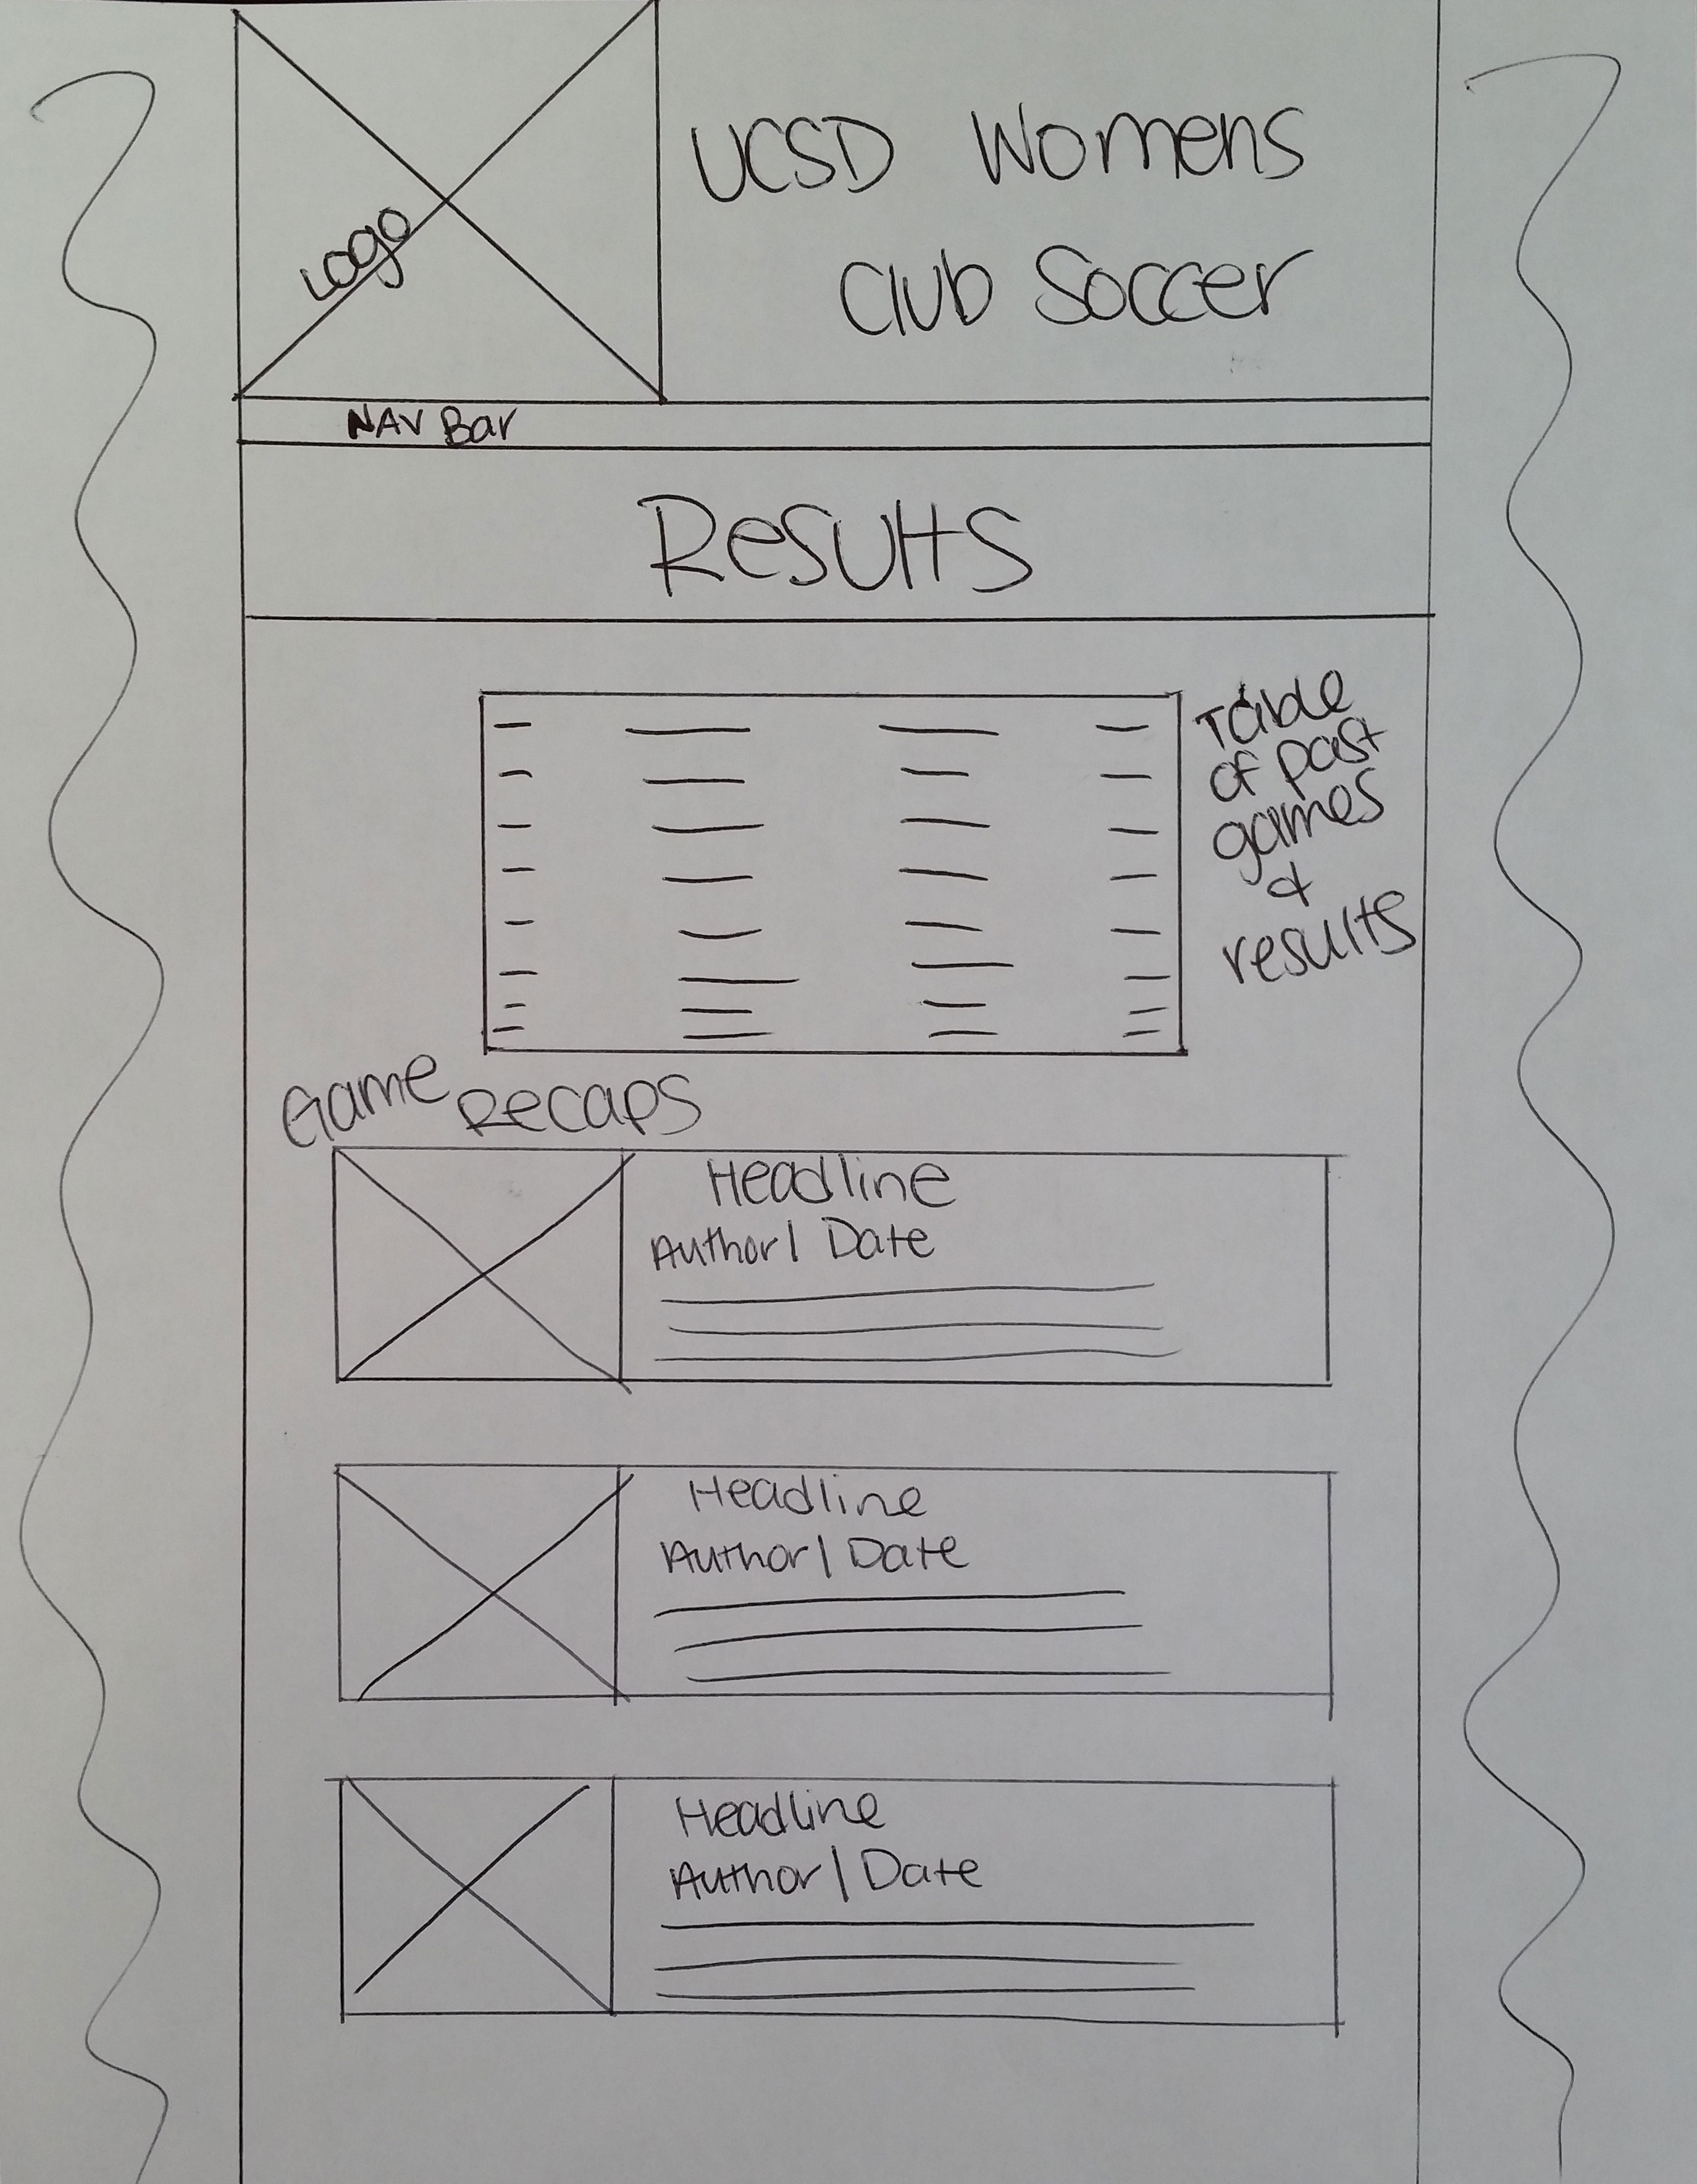 Logo
UCSD Womens
Club Soccer
NAV Bar
Results
Table
of past
games
&
results
Game Recaps
Headline
Author | Date
Headline
Author | Date
Headline
Author | Date